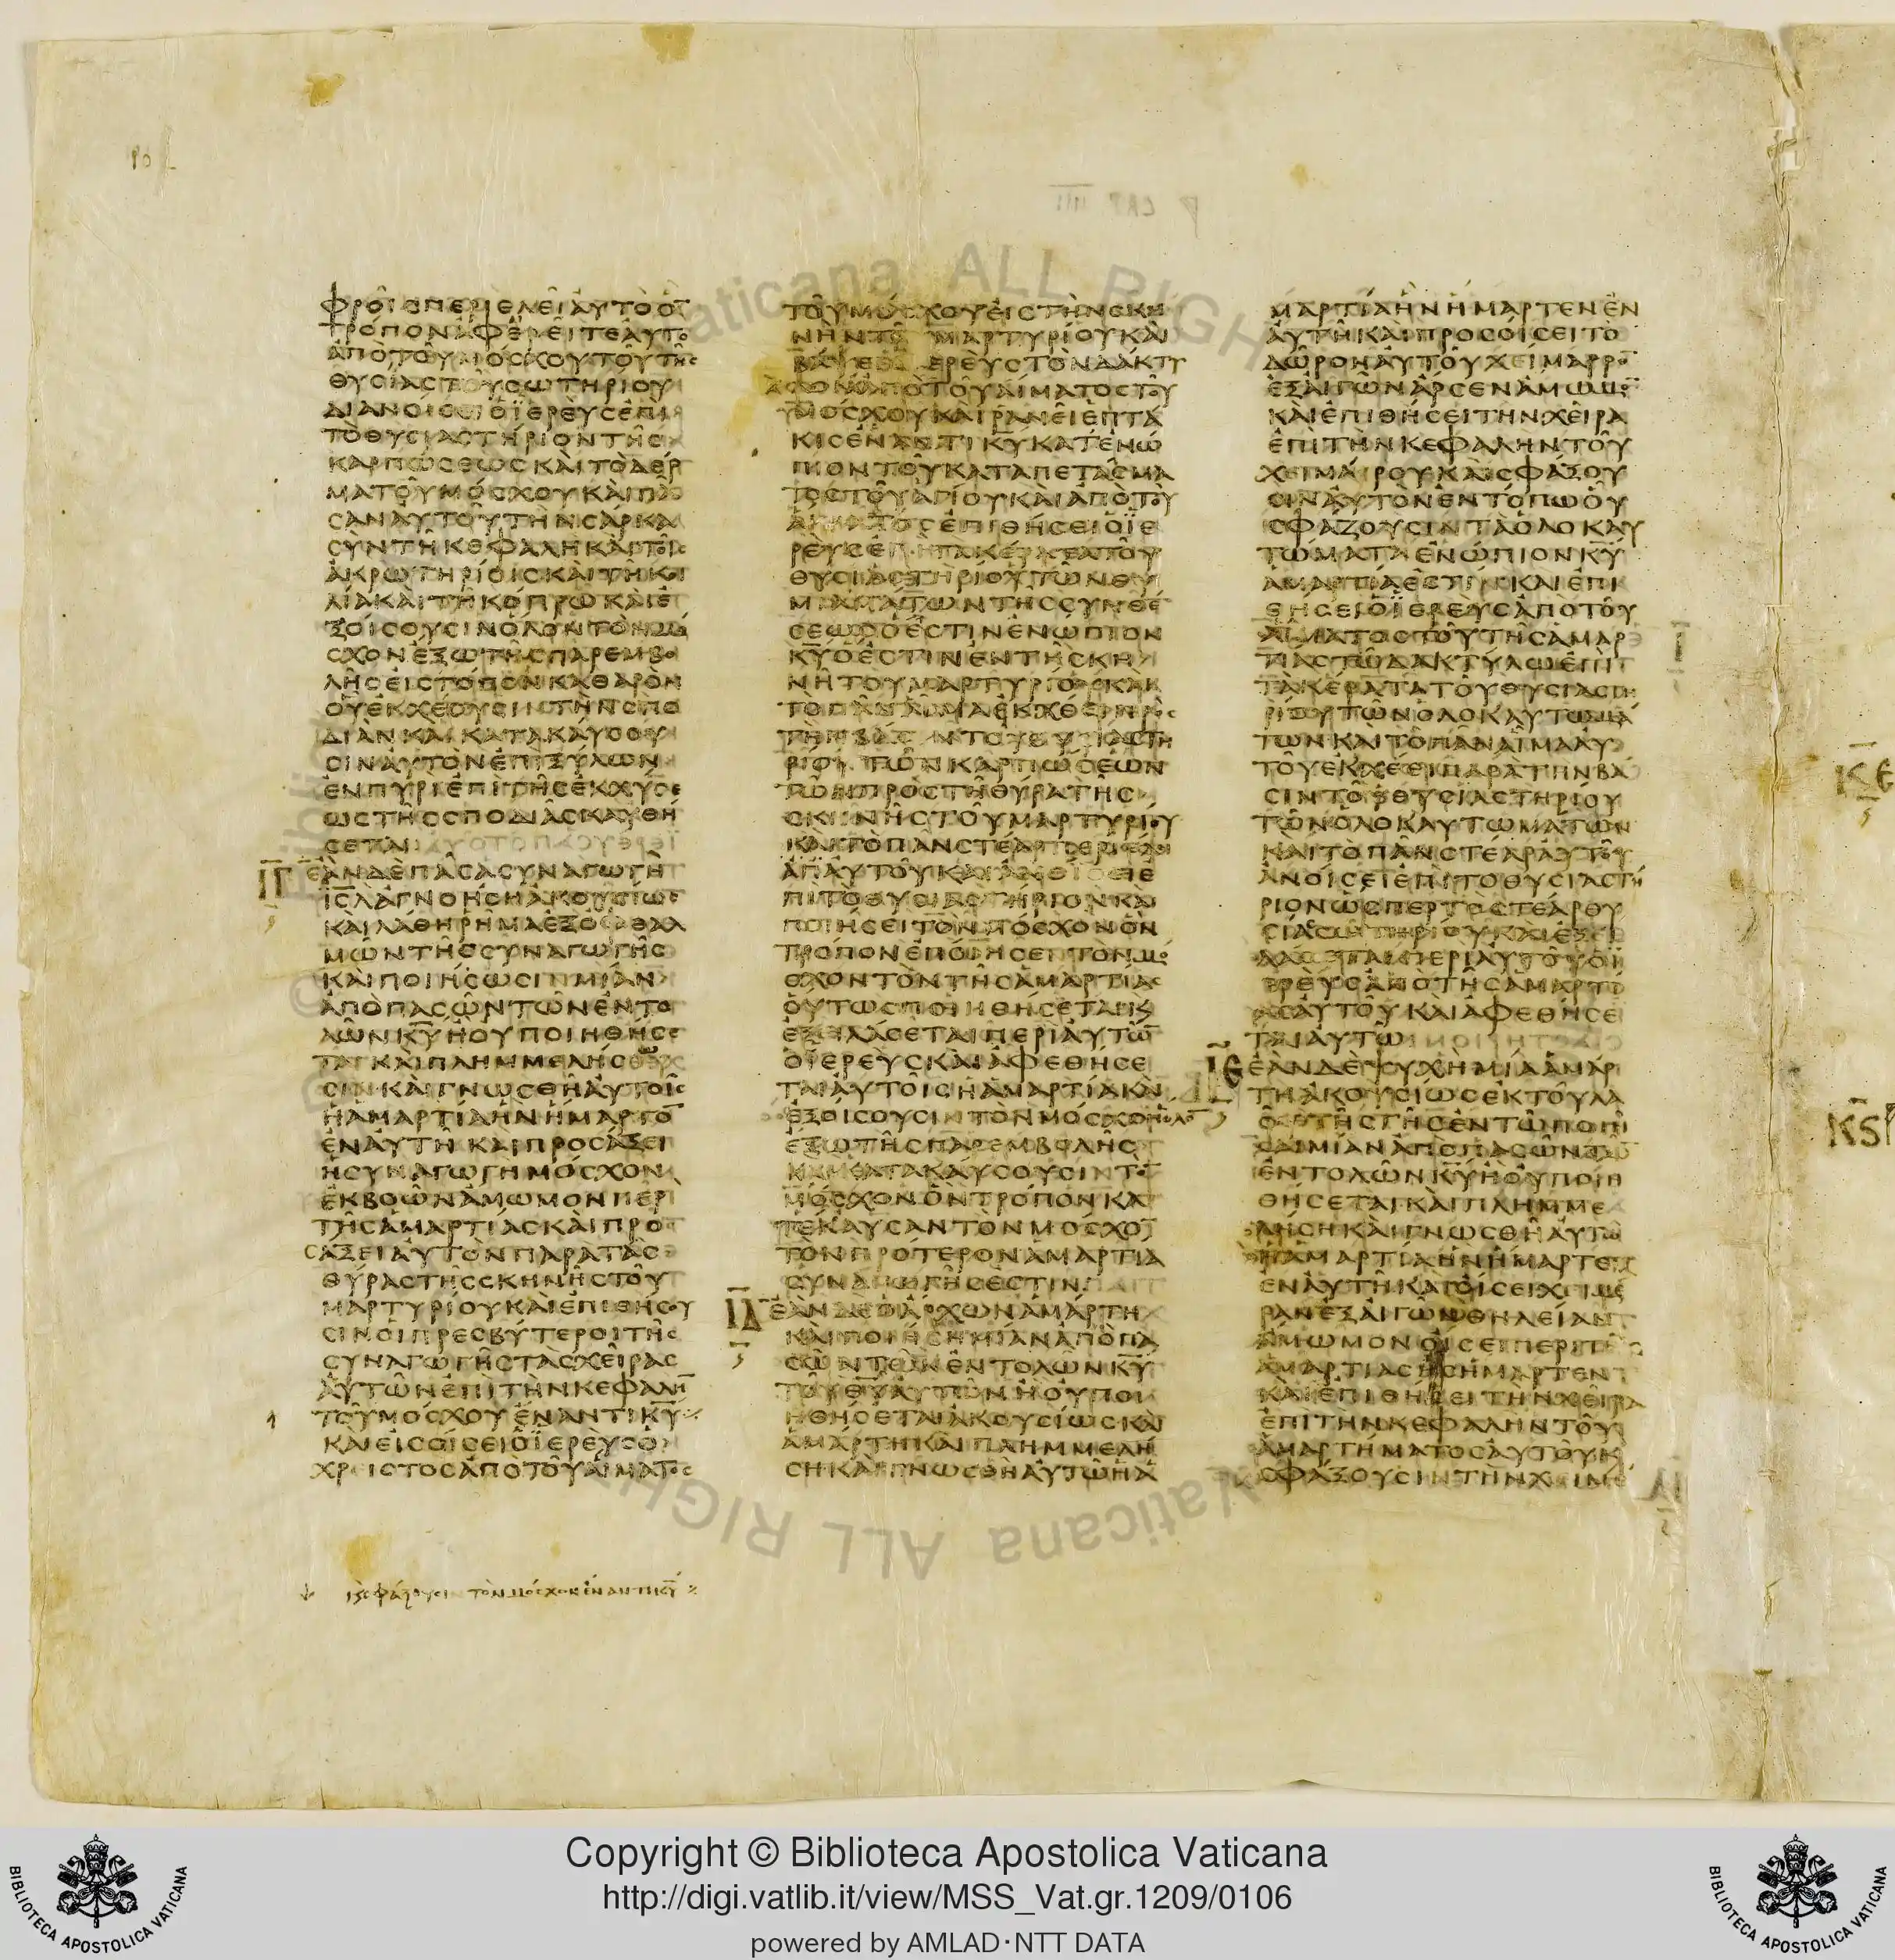 ΤΡΟΠΟΝΑΦΕΡΕΙΤΕΑΥΤΟ
ΑΠΟΤΟΥΜΟϹΧΟΥΤΟΥΤΗϹ
ΘΥϹΙΑϹΤΟΥϹΩΤΗΡΙΟΥ
ΑΝΟΙϹΕΙΟΪΕΡΕΥϹΕΠΙ
ΤΟΘΥϹΙΑϹΤΗΡΙΟΝΤΗϹ
ΚΑΡΠΩϹΕΩϹΚΑΙΤΟΔΕΡ
ΜΑΤΟΥΜΟϹΧΟΥΚΑΙΠΑ
ϹΑΝΑΥΤΟΥΤΗΝϹΑΡΚΑ
ϹΥΝΤΗΚΕΦΑΛΗΚΑΙΤΟΙϹ
ΑΚΡΩΤΗΡΙΟΙϹΚΑΙΤΗΚΟΙ
ΛΙΑΚΑΙΤΗΚΟΠΡΩΚΑΙΕ
ΞΟΙϹΟΥϹΙΝΟΛΟΝΤΟΝΜΟ
ϹΧΟΝΕΞΩΤΗϹΠΑΡΕΜΒΟ
ΛΗϹΕΙϹΤΟΠΟΝΚΑΘΑΡΟΝ
ΟΥΕΚΧΕΟΥϹΙΝΤΗΝϹΠΟ
ΔΙΑΝΚΑΙΚΑΤΑΚΑΥϹΟΥ
ϹΙΝΑΥΤΟΝΕΠΙΞΥΛΩΝ
ΕΝΠΥΡΙΕΠΙΤΗϹΕΚΧΥϹΕ
ΩϹΤΗϹϹΠΟΔΙΑϹΚΑΥΘΗ
ϹΕΤΑΙ
ΙΓ ΕΑΝΔΕΠΑϹΑϹΥΝΑΓΩΓΗ
ΙϹΛΑΓΝΟΗϹΗΑΚΟΥϹΙΩϹ
ΚΑΙΛΑΘΗΡΗΜΑΕΞΟΦΘΑΛ
ΜΩΝΤΗϹϹΥΝΑΓΩΓΗϹ
ΚΑΙΠΟΙΗϹΩϹΙΝΜΙΑΝ
ΑΠΟΠΑϹΩΝΤΩΝΕΝΤΟ
ΛΩΝΚΥΗΟΥΠΟΙΗΘΗϹΕ
ΤΑΙΚΑΙΠΛΗΜΜΕΛΗϹΩ
ϹΙΝΚΑΙΓΝΩϹΘΗΑΥΤΟΙϹ
ΗΑΜΑΡΤΙΑΗΝΗΜΑΡΤΟ
ΕΝΑΥΤΗΚΑΙΠΡΟϹΑΞΕΙ
ΗϹΥΝΑΓΩΓΗΜΟϹΧΟΝ
ΕΚΒΟΩΝΑΜΩΜΟΝΠΕΡΙ
ΤΗϹΑΜΑΡΤΙΑϹΚΑΙΠΡΟ
ϹΑΞΕΙΑΥΤΟΝΠΑΡΑΤΑϹ
ΘΥΡΑϹΤΗϹϹΚΗΝΗϹΤΟΥ
ΜΑΡΤΥΡΙΟΥΚΑΙΕΠΙΘΗϹΟΥ
ϹΙΝΟΙΠΡΕϹΒΥΤΕΡΟΙΤΗϹ
ϹΥΝΑΓΩΓΗϹΤΑϹΧΕΙΡΑϹ
ΑΥΤΩΝΕΠΙΤΗΝΚΕΦΑΛΗ
ΤΟΥΜΟϹΧΟΥΕΝΑΝΤΙΚΥ
ΚΑΙΕΙϹΟΙϹΕΙΟΪΕΡΕΥϹΟ
ΧΡΕΙϹΤΟϹΑΠΟΤΟΥΑΙΜΑΤΟϹ
ΤΟΥΜΟϹΧΟΥΕΙϹΤΗΝϹΚΗ
ΝΗΝΤΟΥΜΑΡΤΥΡΙΟΥΚΑΙ
ΒΑΨΕΙΟΪΕΡΕΥϹΤΟΝΔΑΚΤΥ
ΛΟΝΑΠΟΤΟΥΑΙΜΑΤΟϹΤΟΥ
ΜΟϹΧΟΥΚΑΙΡΑΝΕΙΕΠΤΑ
ΚΙϹΕΝΑΝΤΙΚΥΚΑΤΕΝΩ
ΠΙΟΝΤΟΥΚΑΤΑΠΕΤΑϹΜΑ
ΤΟϹΤΟΥΑΓΙΟΥΚΑΙΑΠΟΤΟΥ
ΑΙΜΑΤΟϹΕΠΙΘΗϹΕΙΟΪΕ
ΡΕΥϹΕΠΙΤΑΚΕΡΑΤΑΤΟΥ
ΘΥϹΙΑϹΤΗΡΙΟΥΤΩΝΘΥ
ΜΙΑΜΑΤΩΝΤΗϹϹΥΝΘΕ
ϹΕΩϹΟΕϹΤΙΝΕΝΩΠΙΟΝ
ΚΥΟΕϹΤΙΝΕΝΤΗϹΚΗ
ΝΗΤΟΥΜΑΡΤΥΡΙΟΥΚΑΙ
ΤΟΠΑΝΑΙΜΑΕΚΧΕΕΙΠΡΟϹ
ΤΗΝΒΑϹΙΝΤΟΥΘΥϹΙΑϹΤΗ
ΡΙΟΥΤΩΝΚΑΡΠΩϹΕΩΝ
ΤΩΝΠΡΟϹΤΗΘΥΡΑΤΗϹ
ϹΚΗΝΗϹΤΟΥΜΑΡΤΥΡΙΟΥ
ΚΑΙΤΟΠΑΝϹΤΕΑΡΠΕΡΙΕΛΕΙ
ΑΠΑΥΤΟΥΚΑΙΑΝΟΙϹΕΙΕ
ΠΙΤΟΘΥϹΙΑϹΤΗΡΙΟΝΚΑΙ
ΠΟΙΗϹΕΙΤΟΝΜΟϹΧΟΝΟΝ
ΤΡΟΠΟΝΕΠΟΙΗϹΕΝΤΟΝΜΟ
ϹΧΟΝΤΟΝΤΗϹΑΜΑΡΤΙΑϹ
ΟΥΤΩϹΠΟΙΗΘΗϹΕΤΑΙΚ
ΕΞΕΙΛΑϹΕΤΑΙΠΕΡΙΑΥΤΩ
ΟΪΕΡΕΥϹΚΑΙΑΦΕΘΗϹΕ
ΤΑΙΑΥΤΟΙϹΗΑΜΑΡΤΙΑΚΑΙ
ΕΞΟΙϹΟΥϹΙΝΤΟΝΜΟϹΧΟΝΟΛΟ
ΕΞΩΤΗϹΠΑΡΕΜΒΟΛΗϹ
ΚΑΙΚΑΤΑΚΑΥϹΟΥϹΙΝΤΟ
ΜΟϹΧΟΝΟΝΤΡΟΠΟΝΚΑ
ΤΕΚΑΥϹΑΝΤΟΝΜΟϹΧΟ
ΤΟΝΠΡΟΤΕΡΟΝΑΜΑΡΤΙΑ
ϹΥΝΑΓΩΓΗϹΕϹΤΙΝ
ΙΔ ΕΑΝΔΕΟΑΡΧΩΝΑΜΑΡΤΗ
ΚΑΙΠΟΙΗϹΗΜΙΑΝΑΠΟΠΑ
ϹΩΝΤΩΝΕΝΤΟΛΩΝΚΥ
ΤΟΥΘΥΑΥΤΩΝΗΟΥΠΟΙ
ΗΘΗϹΕΤΑΙΑΚΟΥϹΙΩϹΚΑΙ
ΑΜΑΡΤΗΚΑΙΠΛΗΜΜΕΛΗ
ϹΗΚΑΙΓΝΩϹΘΗΑΥΤΩΗΑ
ΜΑΡΤΙΑΗΝΗΜΑΡΤΕΝΕΝ
ΑΥΤΗΚΑΙΠΡΟϹΟΙϹΕΙΤΟ
ΔΩΡΟΝΑΥΤΟΥΧΕΙΜΑΡΡΟ
ΕΞΑΙΓΩΝΑΡϹΕΝΑΜΩΜΟ
ΚΑΙΕΠΙΘΗϹΕΙΤΗΝΧΕΙΡΑ
ΕΠΙΤΗΝΚΕΦΑΛΗΝΤΟΥ
ΧΕΙΜΑΡΟΥΚΑΙϹΦΑΞΟΥ
ϹΙΝΑΥΤΟΝΕΝΤΟΠΩΟΥ
ϹΦΑΖΟΥϹΙΝΤΑΟΛΟΚΑΥ
ΤΩΜΑΤΑΕΝΩΠΙΟΝΚΥ
ΑΜΑΡΤΙΑΕϹΤΙΝΚΑΙΕΠΙ
ΘΗϹΕΙΟΪΕΡΕΥϹΑΠΟΤΟΥ
ΑΙΜΑΤΟϹΤΟΥΤΗϹΑΜΑΡ
ΤΙΑϹΤΩΔΑΚΤΥΛΩΕΠΙ
ΤΑΚΕΡΑΤΑΤΟΥΘΥϹΙΑϹΤΗ
ΡΙΟΥΤΩΝΟΛΟΚΑΥΤΩΜΑ
ΤΩΝΚΑΙΤΟΠΑΝΑΙΜΑΑΥ
ΤΟΥΕΚΧΕΕΙΠΑΡΑΤΗΝΒΑ
ϹΙΝΤΟΥΘΥϹΙΑϹΤΗΡΙΟΥ
ΤΩΝΟΛΟΚΑΥΤΩΜΑΤΩΝ
ΚΑΙΤΟΠΑΝϹΤΕΑΡΑΥΤΟΥ
ΑΝΟΙϹΕΙΕΠΙΤΟΘΥϹΙΑϹΤΗ
ΡΙΟΝΩϹΠΕΡΤΟϹΤΕΑΡΘΥ
ϹΙΑϹϹΩΤΗΡΙΟΥΚΑΙΕΞΕΙ
ΛΑϹΕΤΑΙΠΕΡΙΑΥΤΟΥΟΪ
ΕΡΕΥϹΑΠΟΤΗϹΑΜΑΡΤΙ
ΑϹΑΥΤΟΥΚΑΙΑΦΕΘΗϹΕ
ΤΑΙΑΥΤΩ
ΙΕ ΕΑΝΔΕΨΥΧΗΜΙΑΑΜΑΡ
ΤΗΑΚΟΥϹΙΩϹΕΚΤΟΥΛΑ
ΟΥΤΗϹΓΗϹΕΝΤΩΠΟΙΗ
ϹΑΙΜΙΑΝΑΠΟΠΑϹΩΝΤΩ
ΕΝΤΟΛΩΝΚΥΗΟΥΠΟΙΗ
ΘΗϹΕΤΑΙΚΑΙΠΛΗΜΜΕ
ΛΗϹΗΚΑΙΓΝΩϹΘΗΑΥΤΩ
ΗΑΜΑΡΤΙΑΗΝΗΜΑΡΤΕΝ
ΕΝΑΥΤΗΚΑΙΟΙϹΕΙΧΕΙΜΕ
ΡΑΝΕΞΑΙΓΩΝΘΗΛΕΙΑΝ
ΑΜΩΜΟΝΟΙϹΕΙΠΕΡΙΤΗϹ
ΑΜΑΡΤΙΑϹΗϹΗΜΑΡΤΕΝ
ΚΑΙΕΠΙΘΗϹΕΙΤΗΝΧΕΙΡΑ
ΕΠΙΤΗΝΚΕΦΑΛΗΝΤΟΥ
ΑΜΑΡΤΗΜΑΤΟϹΑΥΤΟΥΚ
ϹΦΑΞΟΥϹΙΝΤΗΝΧΕΙΜΕ
ΚΕ
ΚϚ
ϹΦΑΖΟΥϹΙΝ ΤΟΝΜΟϹΧΟΝΕΝΑΝΤΙΚΥ
Copyright © Biblioteca Apostolica Vaticana
http://digi.vatlib.it/view/MSS_Vat.gr.1209/0106
powered by AMLAD·NTT DATA
BIBLIOTECA APOSTOLICA VATICANA
BIBLIOTECA APOSTOLICA VATICANA